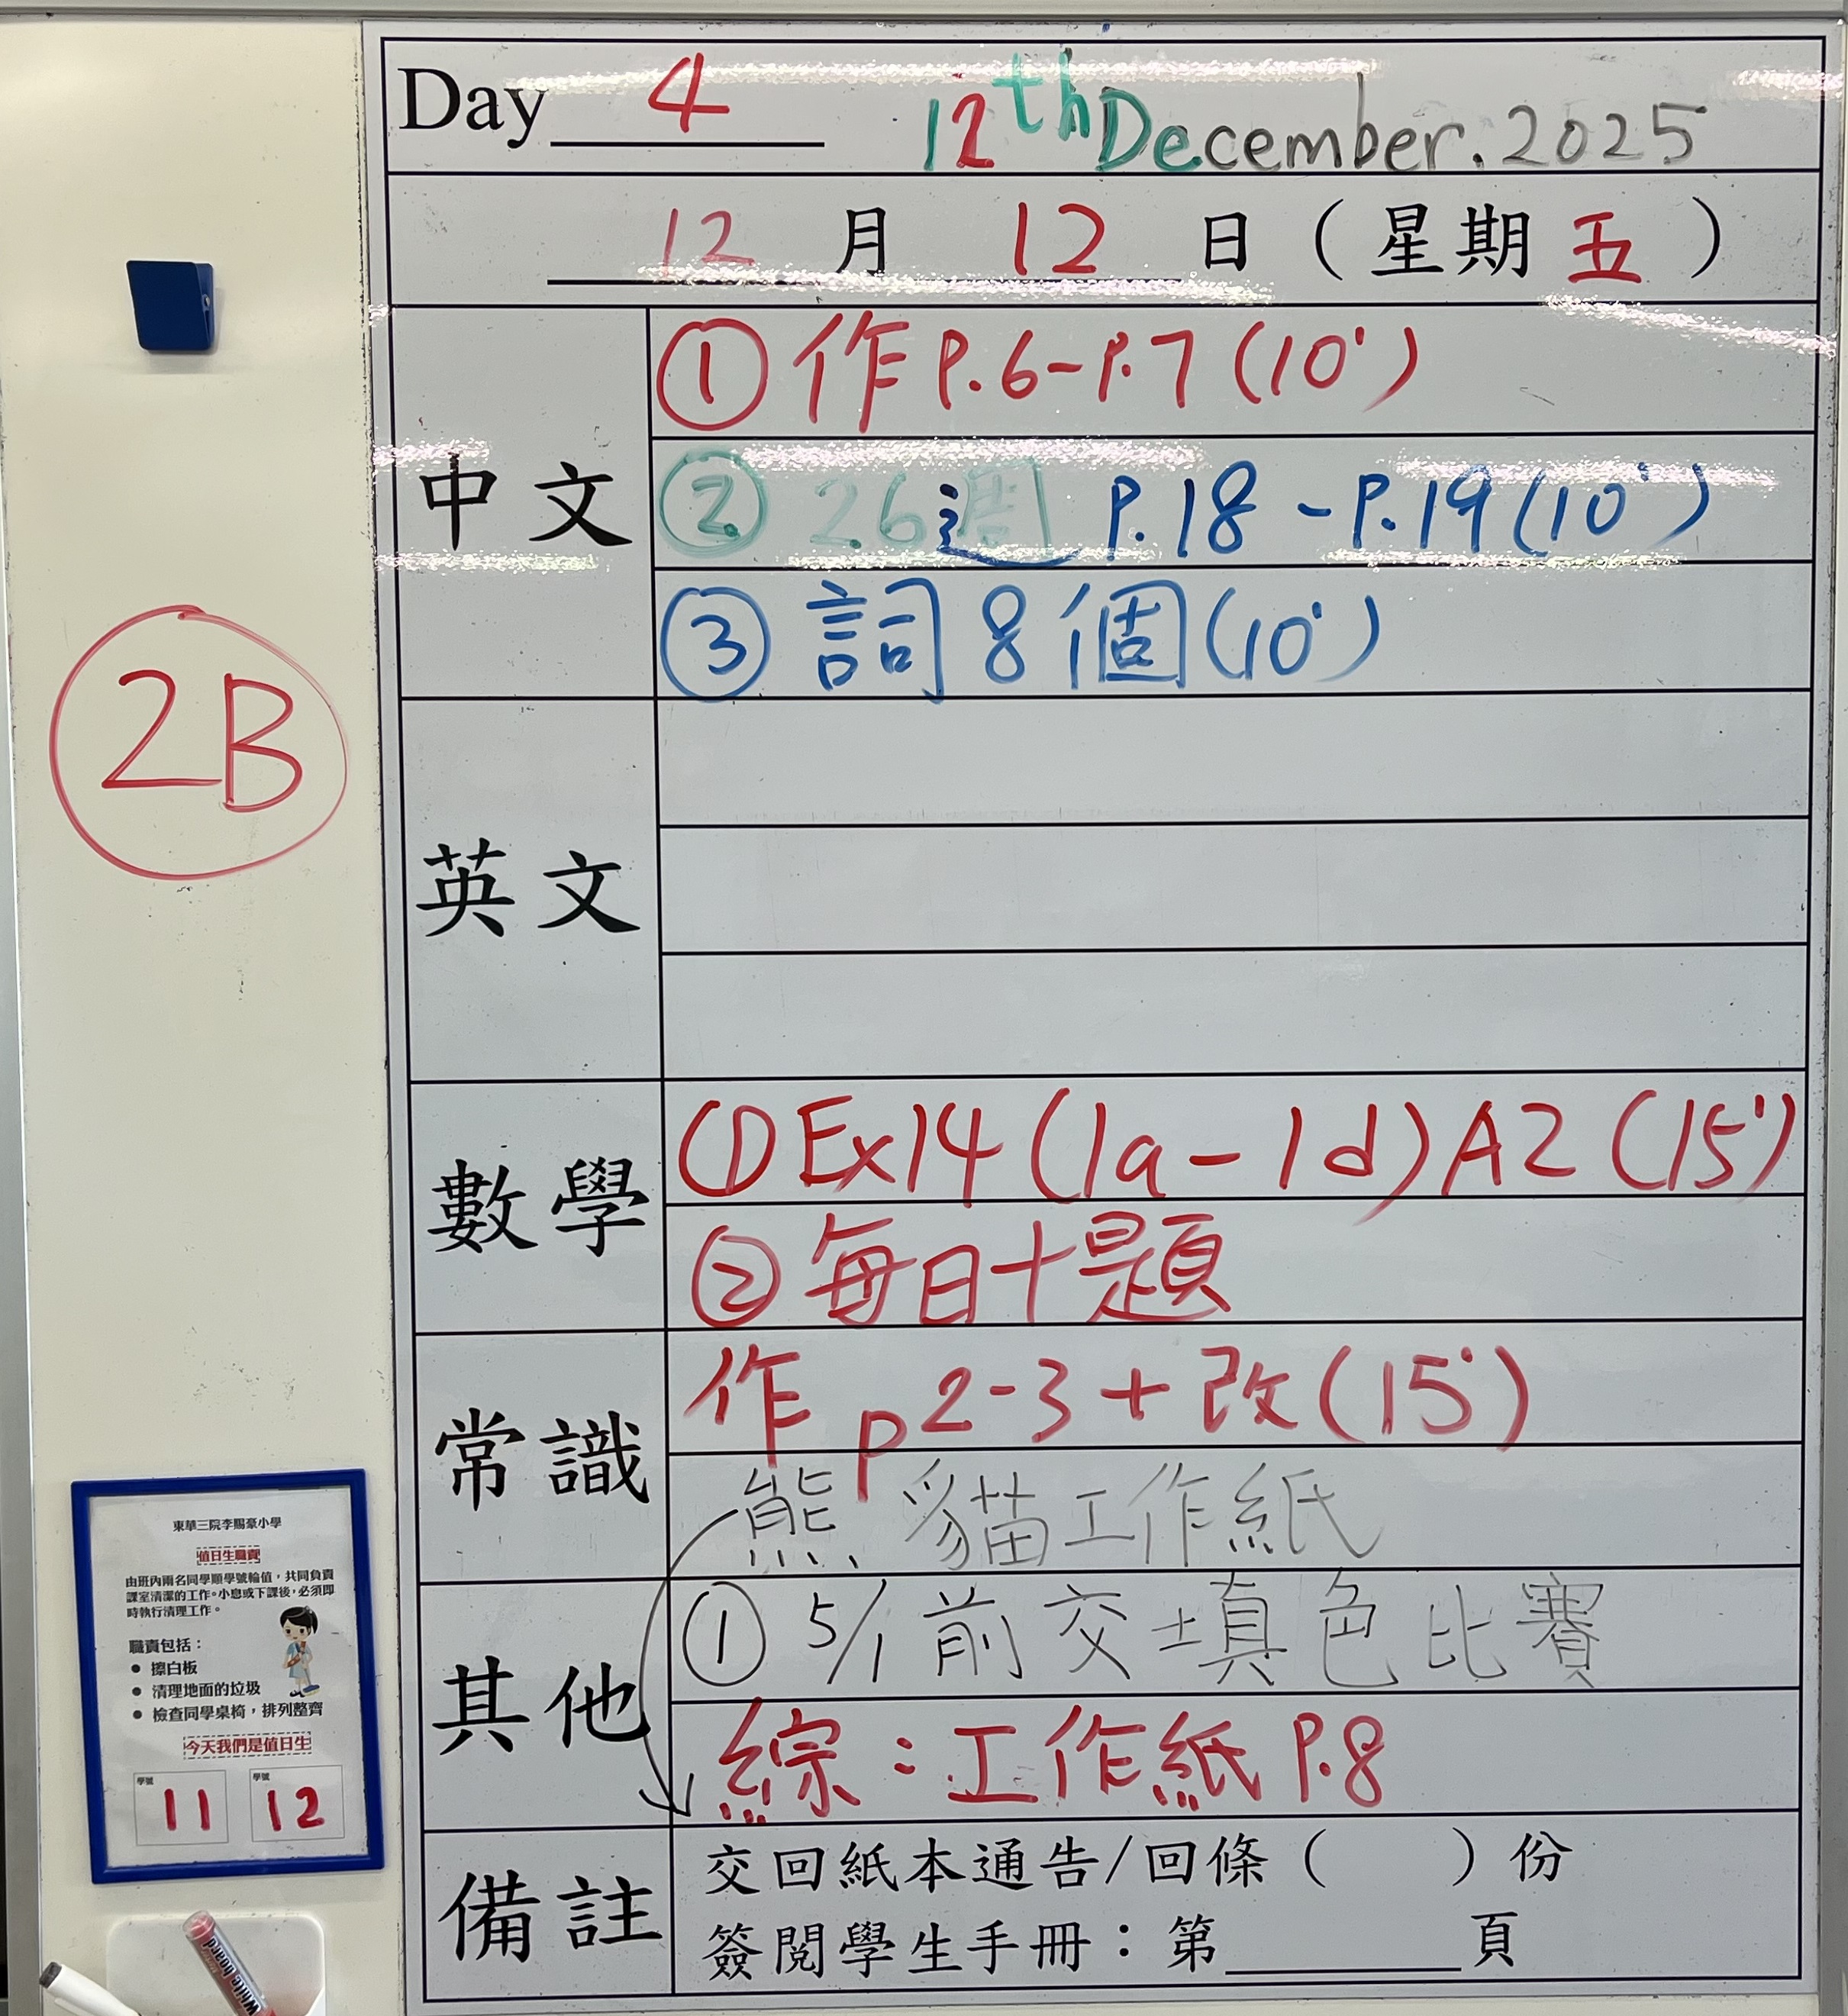 Day 4 12th December.2025
12 月 12 日（星期五）
中文
① 作 P.6-P.7 (10')
② 26週 P.18 - P.19 (10')
③ 詞 8 個 (10')
2B
英文
數學
① Ex14 (1a - 1d) A2 (15')
② 每日十題
常識
作 P2-3 + 改 (15')
熊貓工作紙
其他
① 5/1 前交填色比賽
綜：工作紙 P.8
備註
交回紙本通告/回條（ ）份
簽閱學生手冊：第______頁
東華三院李賜豪小學
值日生職責
由班內兩名同學順學號輪值，共同負責
課室清潔的工作。小息或下課後，必須即
時執行清理工作。
職責包括：
● 擦白板
● 清理地面的垃圾
● 檢查同學桌椅，排列整齊
今天我們是值日生
學號 11 學號 12
White board